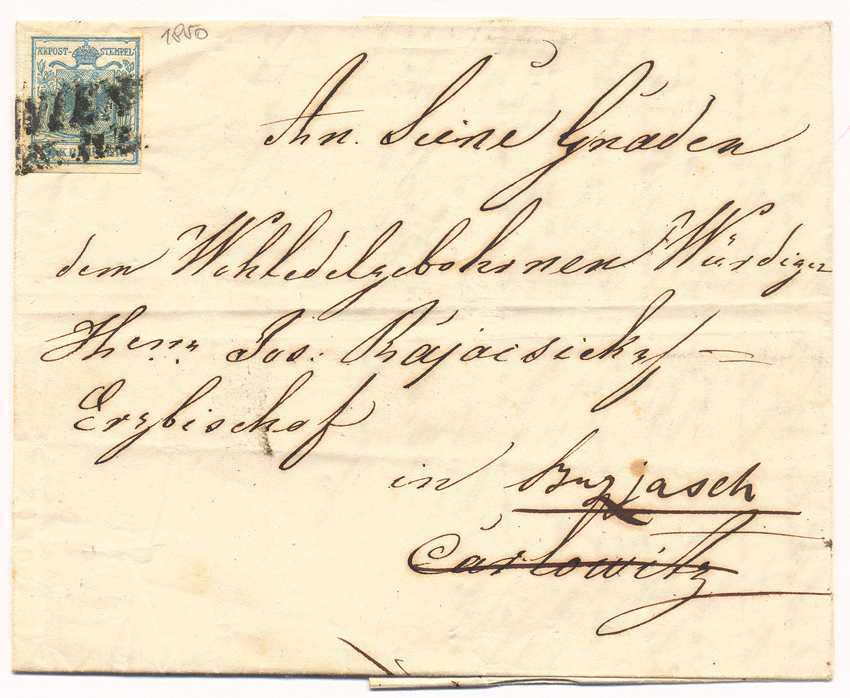 1850
KKPOST-STEMPEL
WIEN
An. Seine Gnaden
dem Wohledelgebohrnen Würdigen
Herrn Jos: Rájacsicky
Erzbischof
in Buzjasch
Carlowitz